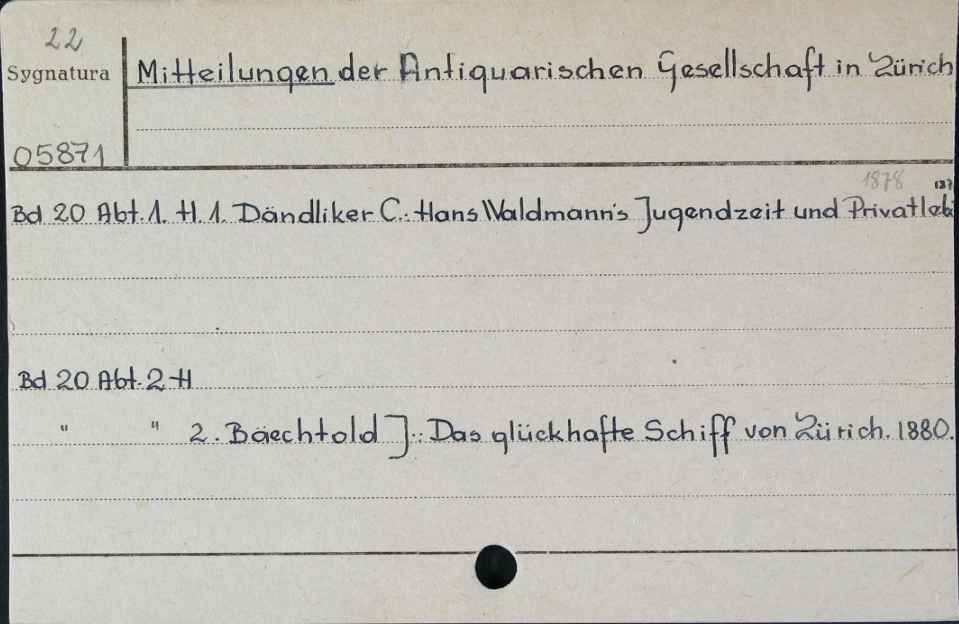 22
Sygnatura
Mitteilungen der Antiquarischen Gesellschaft in Zürich
05871
1878
Bd 20 Abt. 1. H. 1. Dändliker C.: Hans Waldmann's Jugendzeit und Privatleb
Bd 20 Abt. 2 H
" " 2. Baechtold J.: Das glückhafte Schiff von Zürich. 1880.